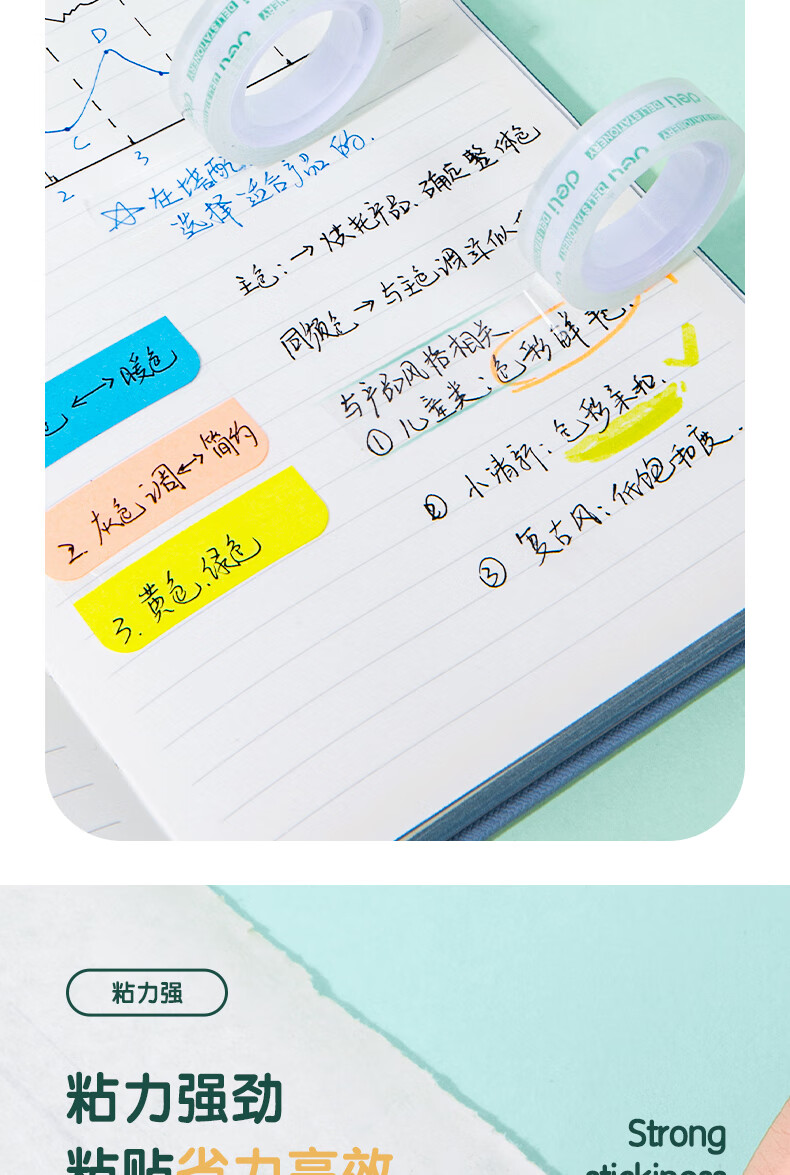 D
C
2
3
deli
DELI STATIONERY
deli
deli
DELI STATIONERY
deli
DELI STATIONERY
☆在搭配
选择适合产品的.
主色:→烘托产品、确定整体色
同类色→与主色调类似
与产品风格相关.
①儿童类:色彩鲜艳.
②小清新:色彩柔和.
③复古风:低饱和度.
色↔暖色
2.灰色调↔简约
3.黄色、绿色
粘力强
粘力强劲
粘贴省力高效
Strong
stickiness